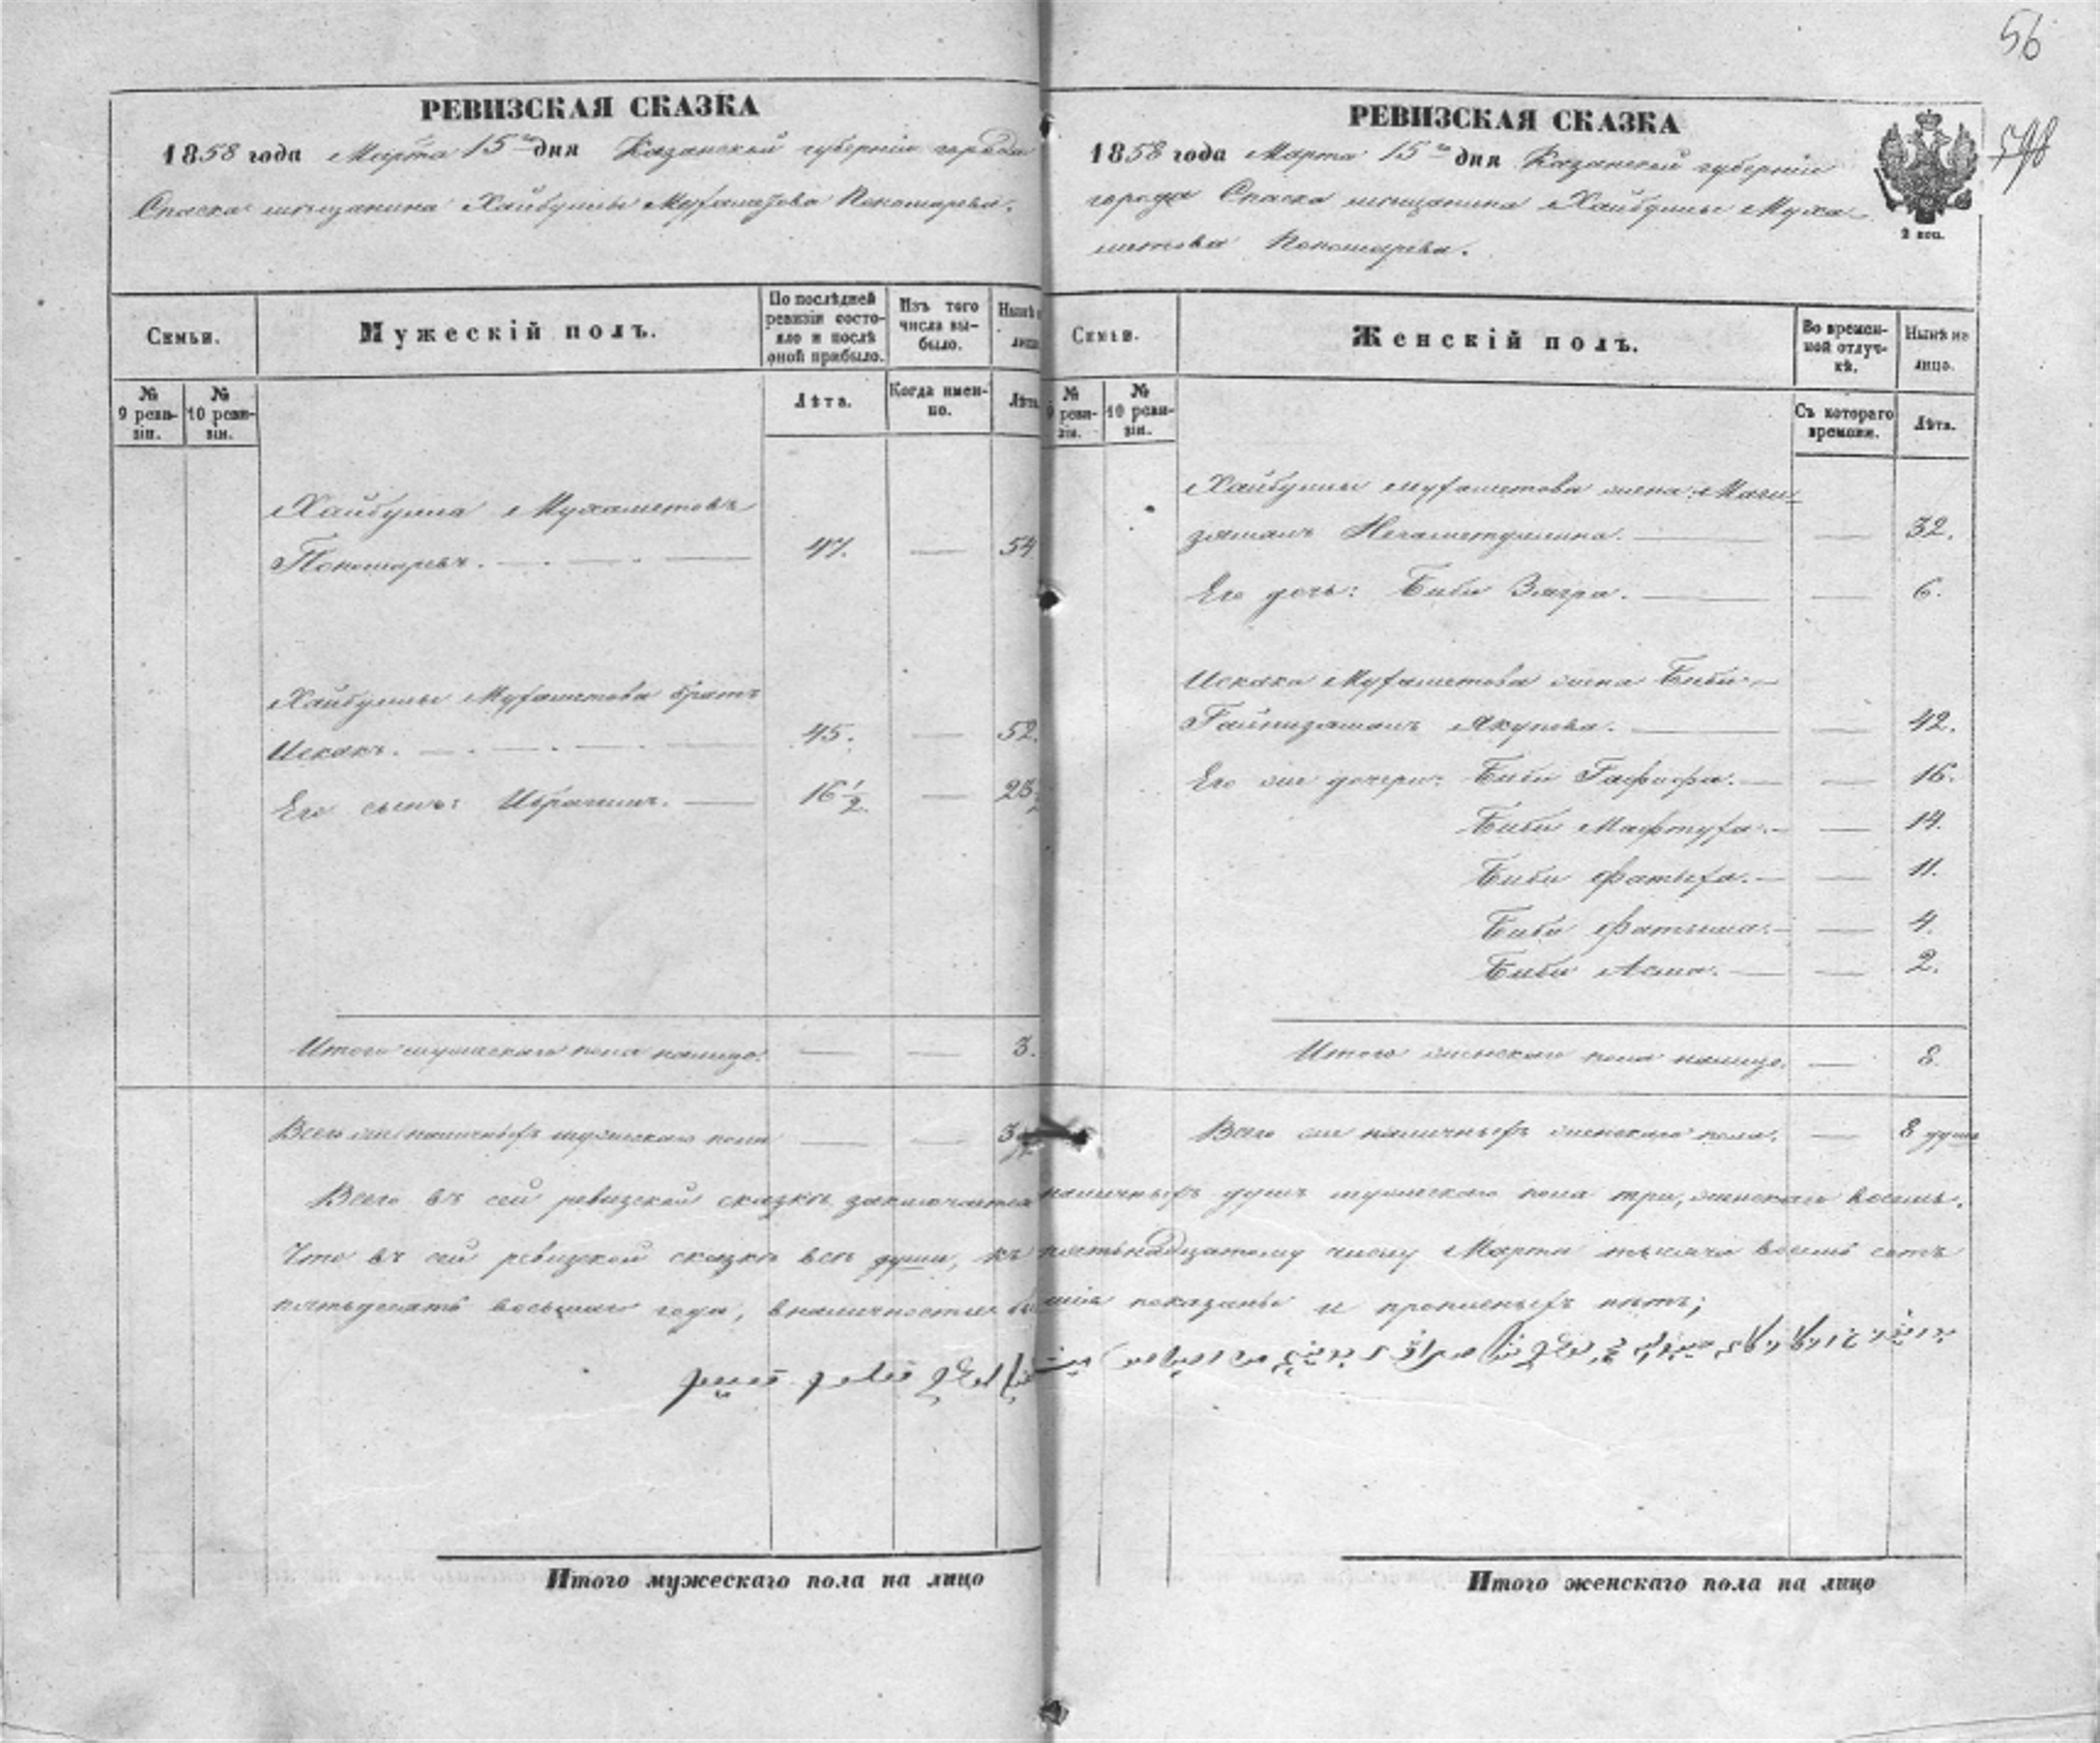 56
РЕВИЗСКАЯ СКАЗКА
1858 года Марта 15го дня Казанской губернiи города
Спаска мѣщанина Хайбуллы Мухаметова Пономарева.
Семьи.
Мужескiй полъ.
По послѣдней ревизiи состояло и послѣ оной прибыло.
Изъ того числа выбыло.
Нынѣ
№ 9 ревизiи.
№ 10 ревизiи.
Лѣта.
Когда именно.
Лѣта
Хайбулла Мухаметовъ
Пономаревъ. 47. — 54
Хайбуллы Мухаметова братъ
Искакъ. 45. — 52.
Его сынъ: Ибрагим. — 16 1/2. —
Итого мужескаго пола налицо. — — 3.
Всего же наличныхъ мужескаго пола — — 3
РЕВИЗСКАЯ СКАЗКА
1858 года Марта 15го дня Казанской губернiи
города Спаска мѣщанина Хайбуллы Муха-
метова Пономарева.
2 коп.
Семьи.
Женскiй полъ.
Во временной отлучкѣ.
Нынѣ на лицо.
№ 9 ревизiи.
№ 10 ревизiи.
Съ котораго времени.
Лѣта.
Хайбуллы Мухаметова жена Маги-
замалъ Негаметуллина. — — 32.
Его дочь: Биби Загра. — — 6.
Искака Мухаметова жена Биби-
Гайнизамалъ Якупова. — — 42.
Его же дочери: Биби Гафифа. — — 16.
Биби Мафтуха. — — 14.
Биби Фатыха. — — 11.
Биби Фатыма. — — 4.
Биби Асма. — — 2.
Итого женскаго пола налицо. — 8.
Всего же наличныхъ женскаго пола. — 8 душъ
Всего въ сей ревизской сказкѣ заключается наличныхъ душъ мужескаго пола три, женскаго восемь.
Что въ сей ревизской сказкѣ всѣ души, къ пятьнадцатому числу Марта тысяча восемь сотъ
пятьдесятъ восьмаго года, в наличности показаны и прописныхъ нѣтъ;
Итого мужескаго пола на лицо
Итого женскаго пола на лицо